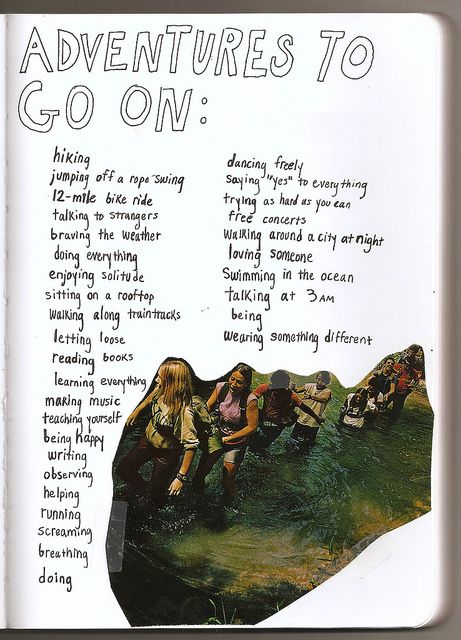 ADVENTURES TO
GO ON:
hiking
jumping off a rope swing
12-mile bike ride
talking to strangers
braving the weather
doing everything
enjoying solitude
sitting on a rooftop
walking along traintracks
letting loose
reading books
learning everything
making music
teaching yourself
being happy
writing
observing
helping
running
screaming
breathing
doing
dancing freely
saying "yes" to everything
trying as hard as you can
free concerts
walking around a city at night
loving someone
Swimming in the ocean
talking at 3AM
being
wearing something different